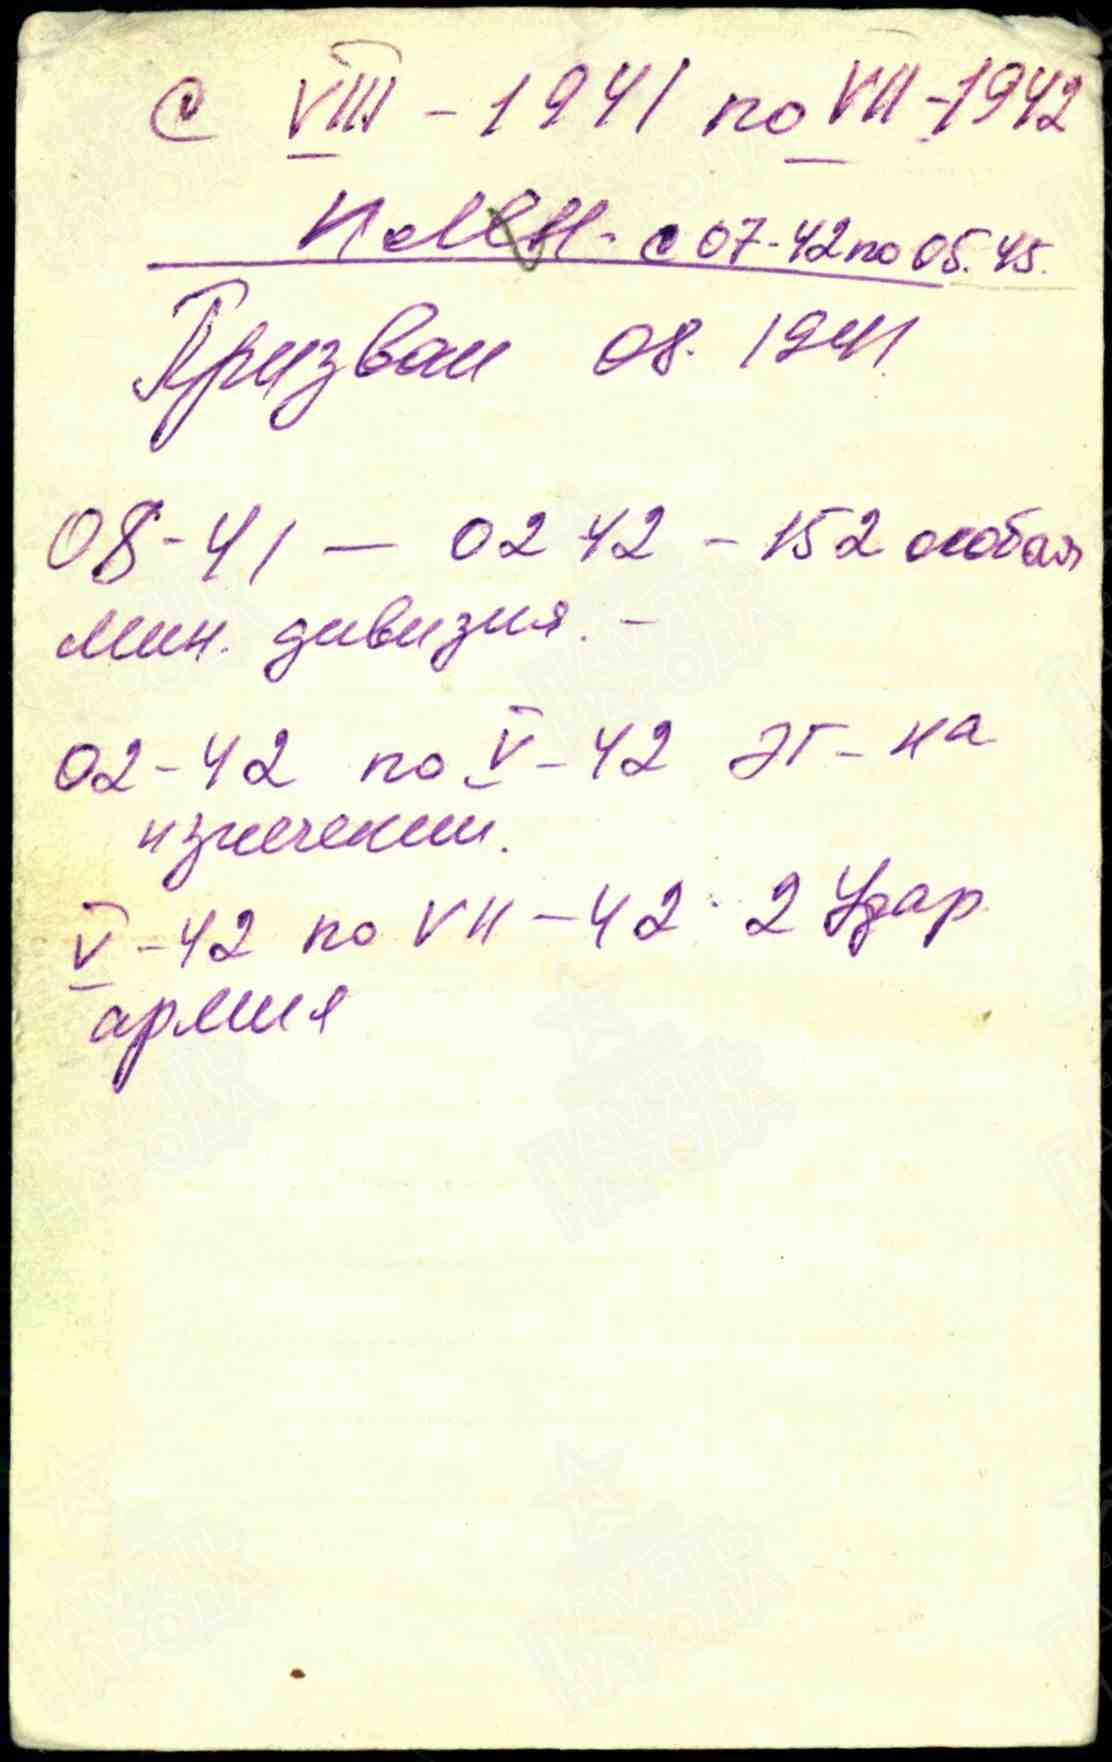 С VIII - 1941 по VII - 1942
Плен - с 07-42 по 05.45.
Призван 08. 1941.
08-41 — 02 42 - 152 особая
мин. дивизия. -
02-42 по V-42 ЭГ - на
излечении.
V-42 по VII-42 2 Удар
армия
ПАМЯТЬ НАРОДА